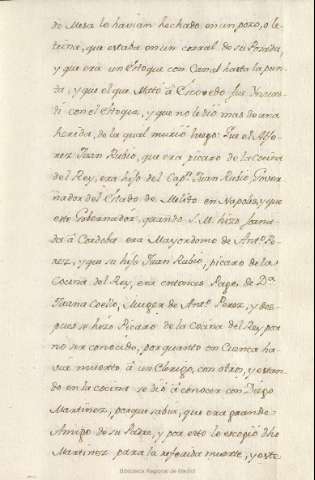 de Mesa lo havian hechado en un pozo, o le
trina, que estaba en un corral de su Posada,
y que era un Estoque con Canal hasta la pun
ta, y que el que Mató á Escovedo fue Insau
ti con el Estoque, y que no le dió mas de una
herida, de la qual murió luego: Fue el Alfe
rez Juan Rubio, que era picaro de la Cocina
del Rey, era hijo del Capn. Juan Rubio Gover
nador del Estado de Melito en Napoles, y que
este Gobernador quando S. M. hizo Jorna
da á Cordoba era Mayordomo de Anto. Pe
rez, y que su hijo Juan Rubio, picaro de la
Cocina del Rey, era entonces Page de Da.
Juana Coello, Muger de Anto. Perez, y des
pues se hizo Picaro de la Cocina del Rey por
no ser conocido, por quanto en Cuenca ha
via muerto á un Clerigo, con otro, y estan
do en la cocina se dió á conocer con Diego
Martinez, porque sabia, que era grande
Amigo de su Padre, y por esto le escogió dho
Martinez para la referida muerte, y este
Biblioteca Regional de Madrid